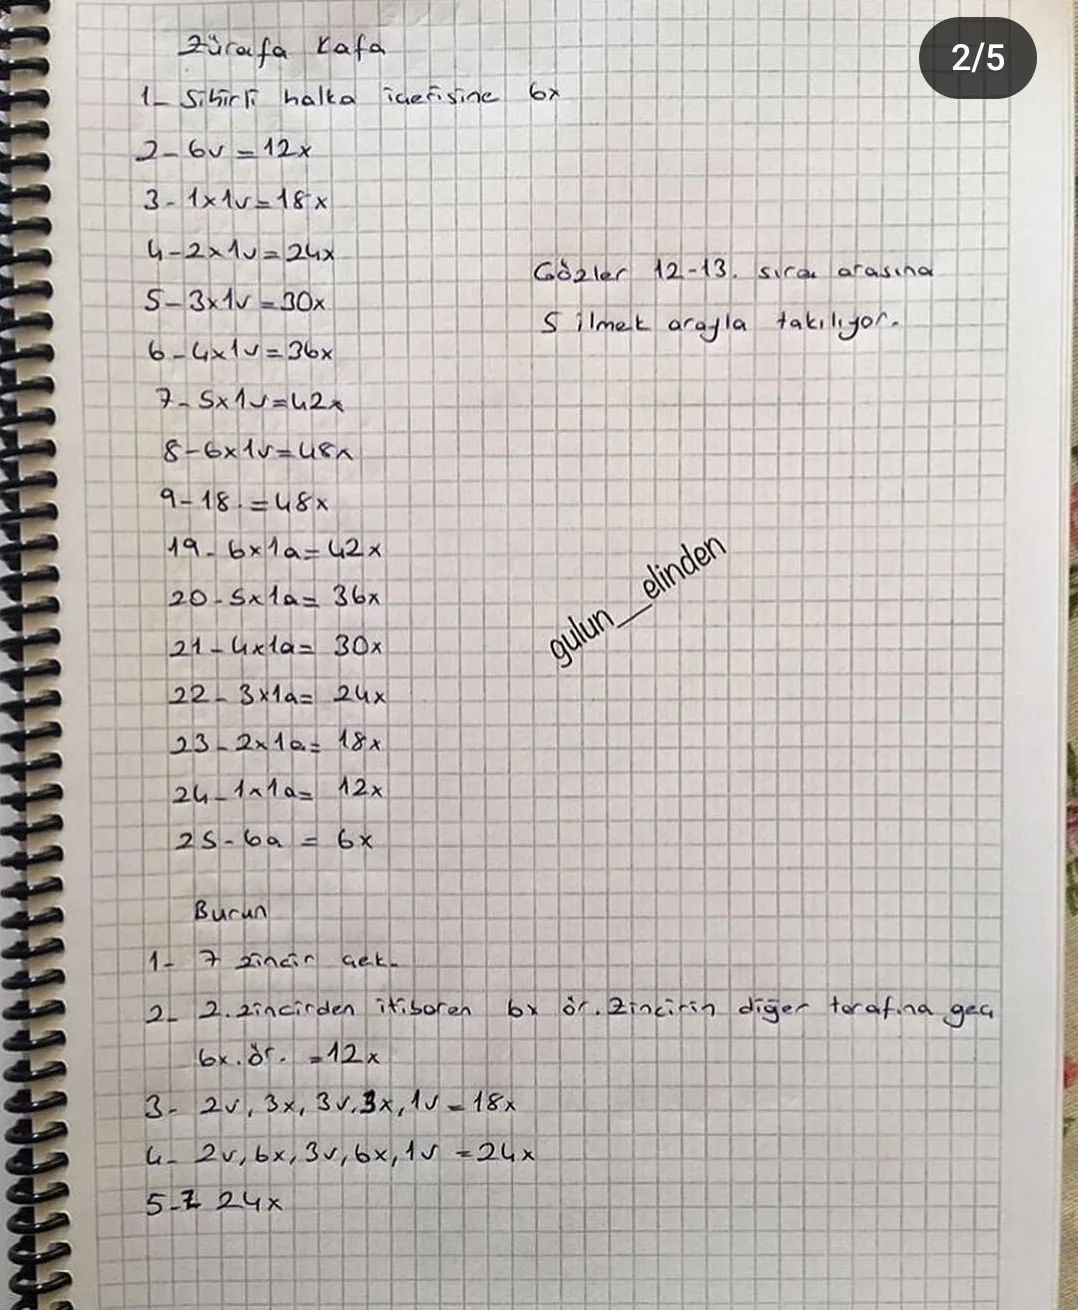 2/5
Zürafa Kafa
1- Sihirli halka içerisine 6x
2- 6v = 12x
3- 1x1v = 18x
4- 2x1v = 24x
Gözler 12-13. sıra arasına
5- 3x1v = 30x
5 ilmek arayla takılıyor.
6- 4x1v = 36x
7- 5x1v = 42x
8- 6x1v = 48x
9- 18. = 48x
19- 6x1a = 42x
20- 5x1a = 36x
21- 4x1a = 30x
22- 3x1a = 24x
23- 2x1a = 18x
24- 1x1a = 12x
25- 6a = 6x
gulun__elinden
Burun
1- 7 zincir çek.
2- 2. zincirden itibaren 6x ör. Zincirin diğer tarafına geç
6x. ör. = 12x
3- 2v, 3x, 3v, 3x, 1v = 18x
4- 2v, 6x, 3v, 6x, 1v = 24x
5-7 24x